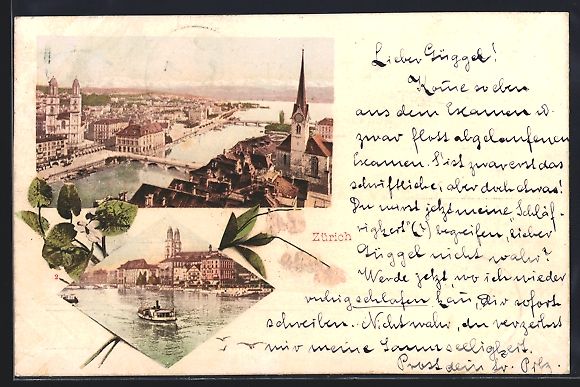 Lieber Güggel!
Kome soeben
aus dem Examen u.
zwar flott abgelaufenen
Examen. S'ist zwar erst das
schriftliche; aber doch etwas!
Du wirst jetzt meine "Schläf-
rigkeit" (!) begreifen, lieber
Güggel nicht wahr?
Werde jetzt wo ich wieder
ruhig schlafen kan, Dir sofort
schreiben. Nicht wahr, du verzeihst
mir meine Saumseeligkeit.
Prost dein Pilz.
Zürich